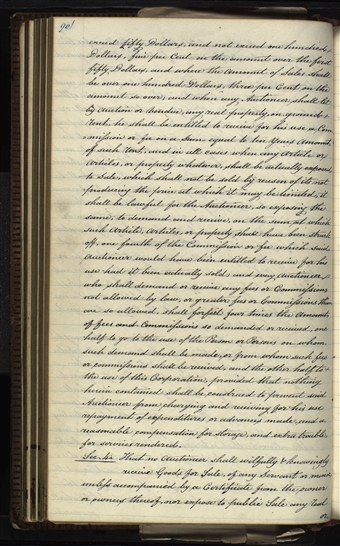 90
exceed fifty Dollars, and not exceed one hundred
Dollars, five per Cent. on the amount over the first
fifty Dollars, and where the amount of Sales shall
be over one hundred Dollars, three per Cent on the
amount so over, and where any Auctioneer shall let
by auction or vendue, any real property, on ground
rent, he shall be entitled to receive for his use a Com
mission or fee on a Sum equal to ten Years Amount
of such rent, and in all cases when any article or
articles, or property whatever, shall be actually exposed
to Sale, which shall not be sold by reason of its not
producing the price at which it may be limited, it
shall be lawful for the Auctioneer, so exposing the
same, to demand and receive, on the sum at which
such article, articles, or property shall have been struck
off, one fourth of the Commission or fee which said
Auctioneer would have been entitled to receive for his
use had it been actually sold; and any auctioneer,
who shall demand or receive any fees or Commissions
not allowed by law, or greater fees or Commissions than
are so allowed, shall forfeit four times the Amount
of fees and Commissions so demanded or received, one
half to go to the use of the Person or Persons on whom
such demand shall be made, or from whom such fees
or commissions shall be received, and the other half to
the use of this Corporation, provided that nothing
herein contained shall be construed to prevent said
Auctioneer from charging and receiving for his use
repayment of expenditures or advances made, and a
reasonable compensation for storage, and extra trouble,
for services rendered.
That no Auctioneer shall wilfully & knowingly
receive Goods for Sale, of any Servant or minor
unless accompanied by a Certificate from the owner
or owners thereof, nor expose to public Sale any
or